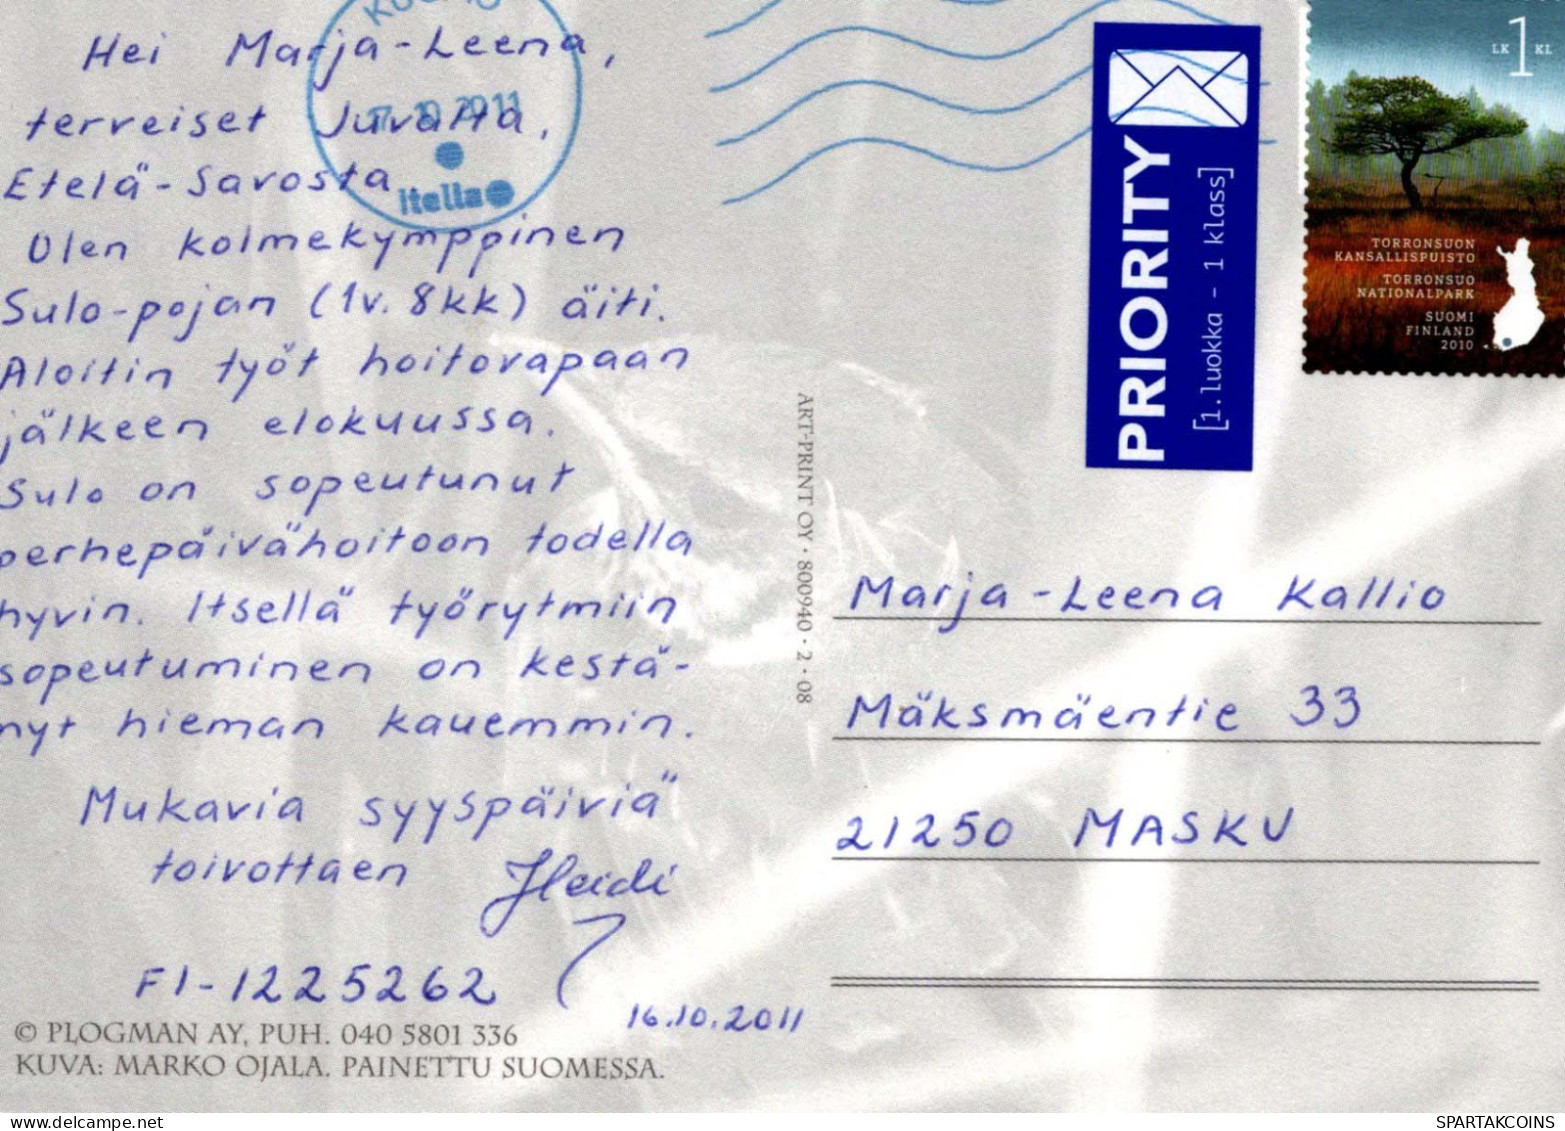 Hei Marja-Leena,
terveiset Juvalta,
Etelä-Savosta
Olen kolmekymppinen
Sulo-pojan (1v. 8kk) äiti.
Aloitin työt hoitovapaan
jälkeen elokuussa.
Sulo on sopeutunut
perhepäivähoitoon todella
hyvin. Itsellä työrytmiin
sopeutuminen on kestä-
nyt hieman kauemmin.
Mukavia syyspäiviä
toivottaen Heidi
FI-1225262
16.10.2011
© PLOGMAN AY, PUH. 040 5801 336
KUVA: MARKO OJALA. PAINETTU SUOMESSA.
2011
Itella
ART-PRINT OY · 800940 · 2 · 08
PRIORITY
[1.luokka - 1 klass]
LK 1 KL
TORRONSUON
KANSALLISPUISTO
TORRONSUO
NATIONALPARK
SUOMI
FINLAND
2010
Marja-Leena Kallio
Mäksmäentie 33
21250 MASKU
delcampe.net
SPARTAKCOINS